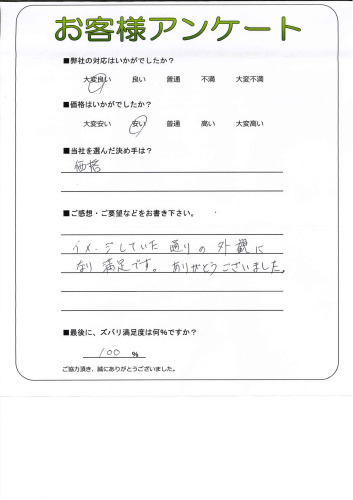 お客様アンケート
■弊社の対応はいかがでしたか？
大変良い 良い 普通 不満 大変不満
■価格はいかがでしたか？
大変安い 安い 普通 高い 大変高い
■当社を選んだ決め手は？
価格
■ご感想・ご要望などをお書き下さい。
イメージしていた通りの外観に
なり満足です。ありがとうございました。
■最後に、ズバリ満足度は何%ですか？
100 %
ご協力頂き、誠にありがとうございました。